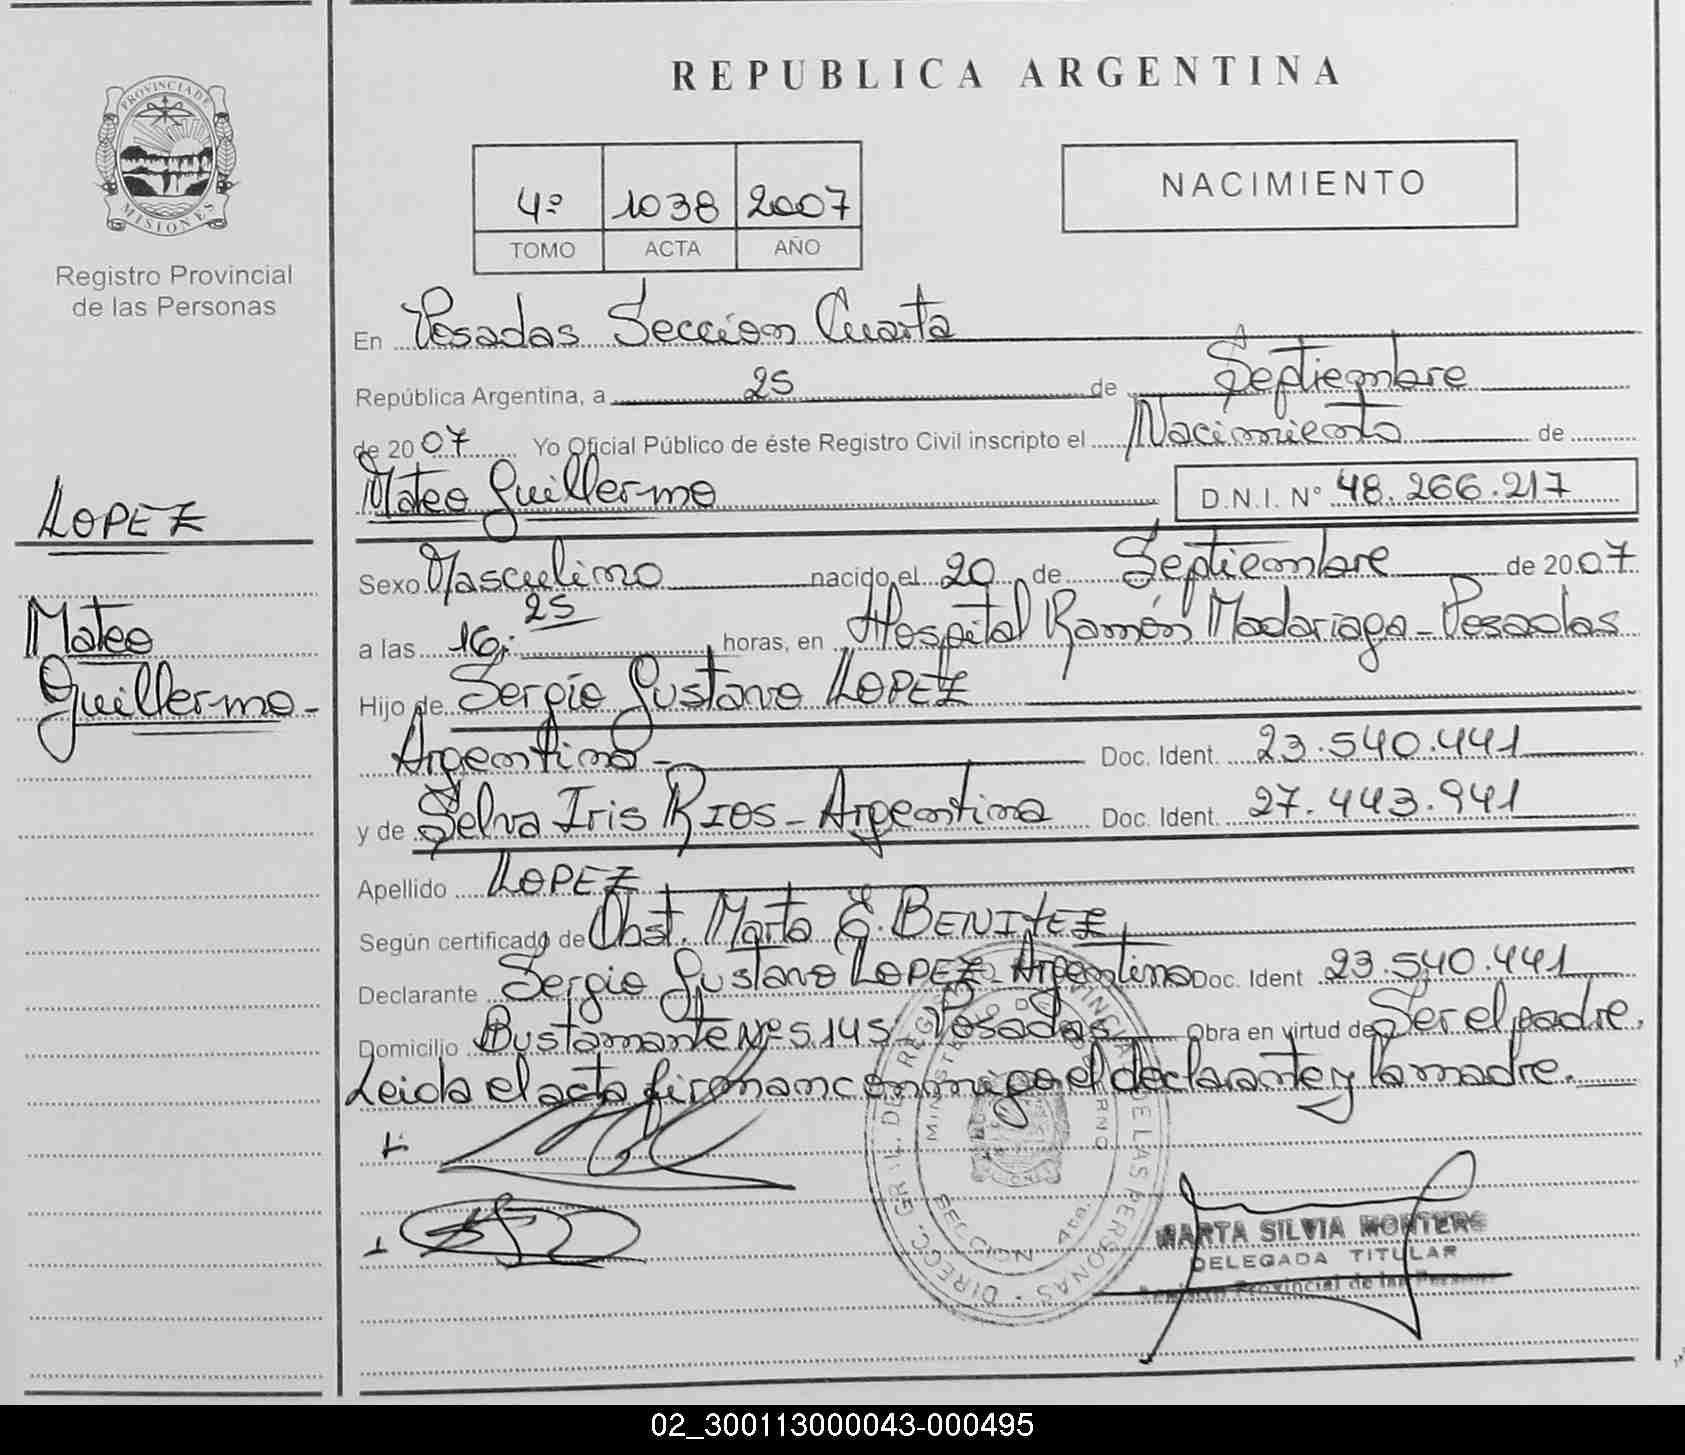 PROVINCIA DE
MISIONES
Registro Provincial
de las Personas
LOPEZ
Mateo
Guillermo-
REPUBLICA ARGENTINA
4º 1038 2007
TOMO ACTA AÑO
NACIMIENTO
En Posadas Sección Cuarta
República Argentina, a 25 de Septiembre
de 2007 Yo Oficial Público de éste Registro Civil inscripto el Nacimiento de
Mateo Guillermo D.N.I. N° 48.266.217
Sexo Masculino nacido el 20 de Septiembre de 2007
a las 16:25 horas, en Hospital Ramón Madariaga - Posadas
Hijo de Sergio Gustavo LOPEZ
Argentino- Doc. Ident. 23.540.441
y de Selva Iris RIOS - Argentina Doc. Ident. 27.443.941
Apellido LOPEZ
Según certificado de Obst. Marta E. BENITEZ
Declarante Sergio Gustavo LOPEZ - Argentino Doc. Ident 23.540.441
Domicilio Bustamante Nº 5145 - Posadas Obra en virtud de Ser el padre.
Leida el acta firman conmigo el declarante y la madre.
MARTA SILVIA MONTERO
DELEGADA TITULAR
Provincial de las
SECCION 4ta.
02_300113000043-000495